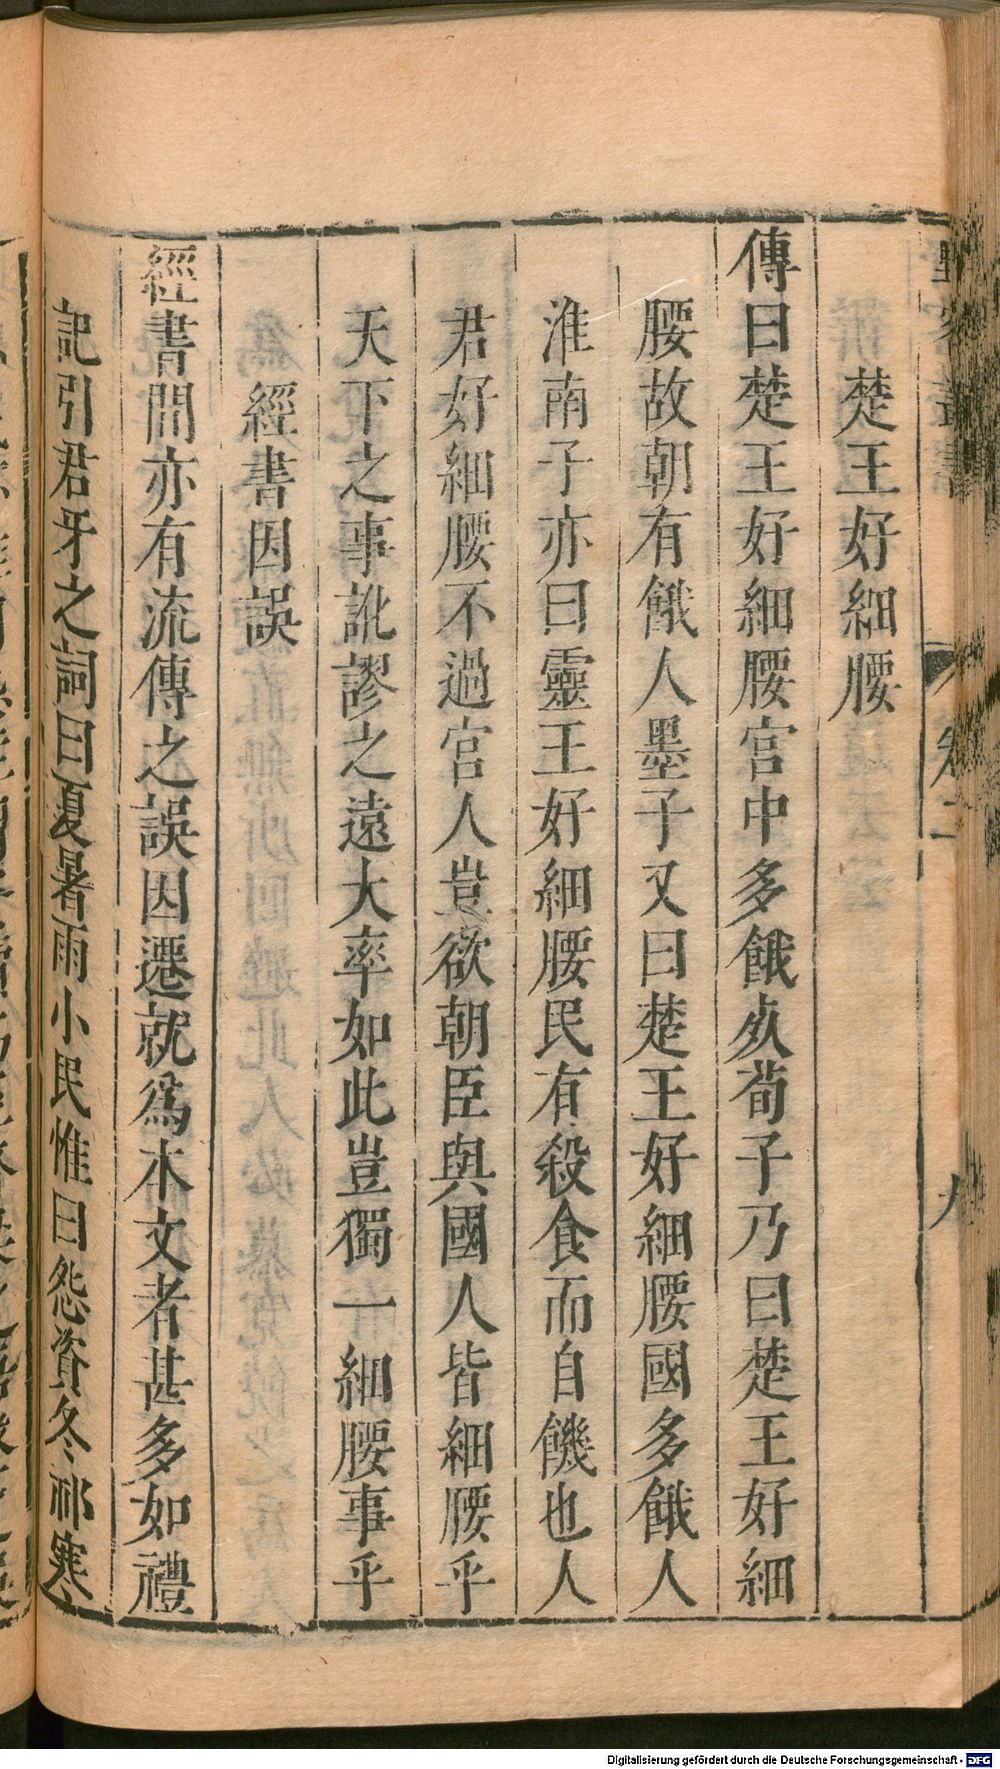 楚王好細腰
傳曰楚王好細腰宫中多餓死荀子乃曰楚王好細
腰故朝有餓人墨子又曰楚王好細腰國多餓人
淮南子亦曰靈王好細腰民有殺食而自饑也人
君好細腰不過宫人豈欲朝臣與國人皆細腰乎
天下之事訛謬之遠大率如此豈獨一細腰事乎
經書因誤
經書間亦有流傳之誤因遷就爲本文者甚多如禮
記引君牙之詞曰夏暑雨小民惟曰怨資冬祁寒
卷二
九
Digitalisierung gefördert durch die Deutsche Forschungsgemeinschaft - DFG